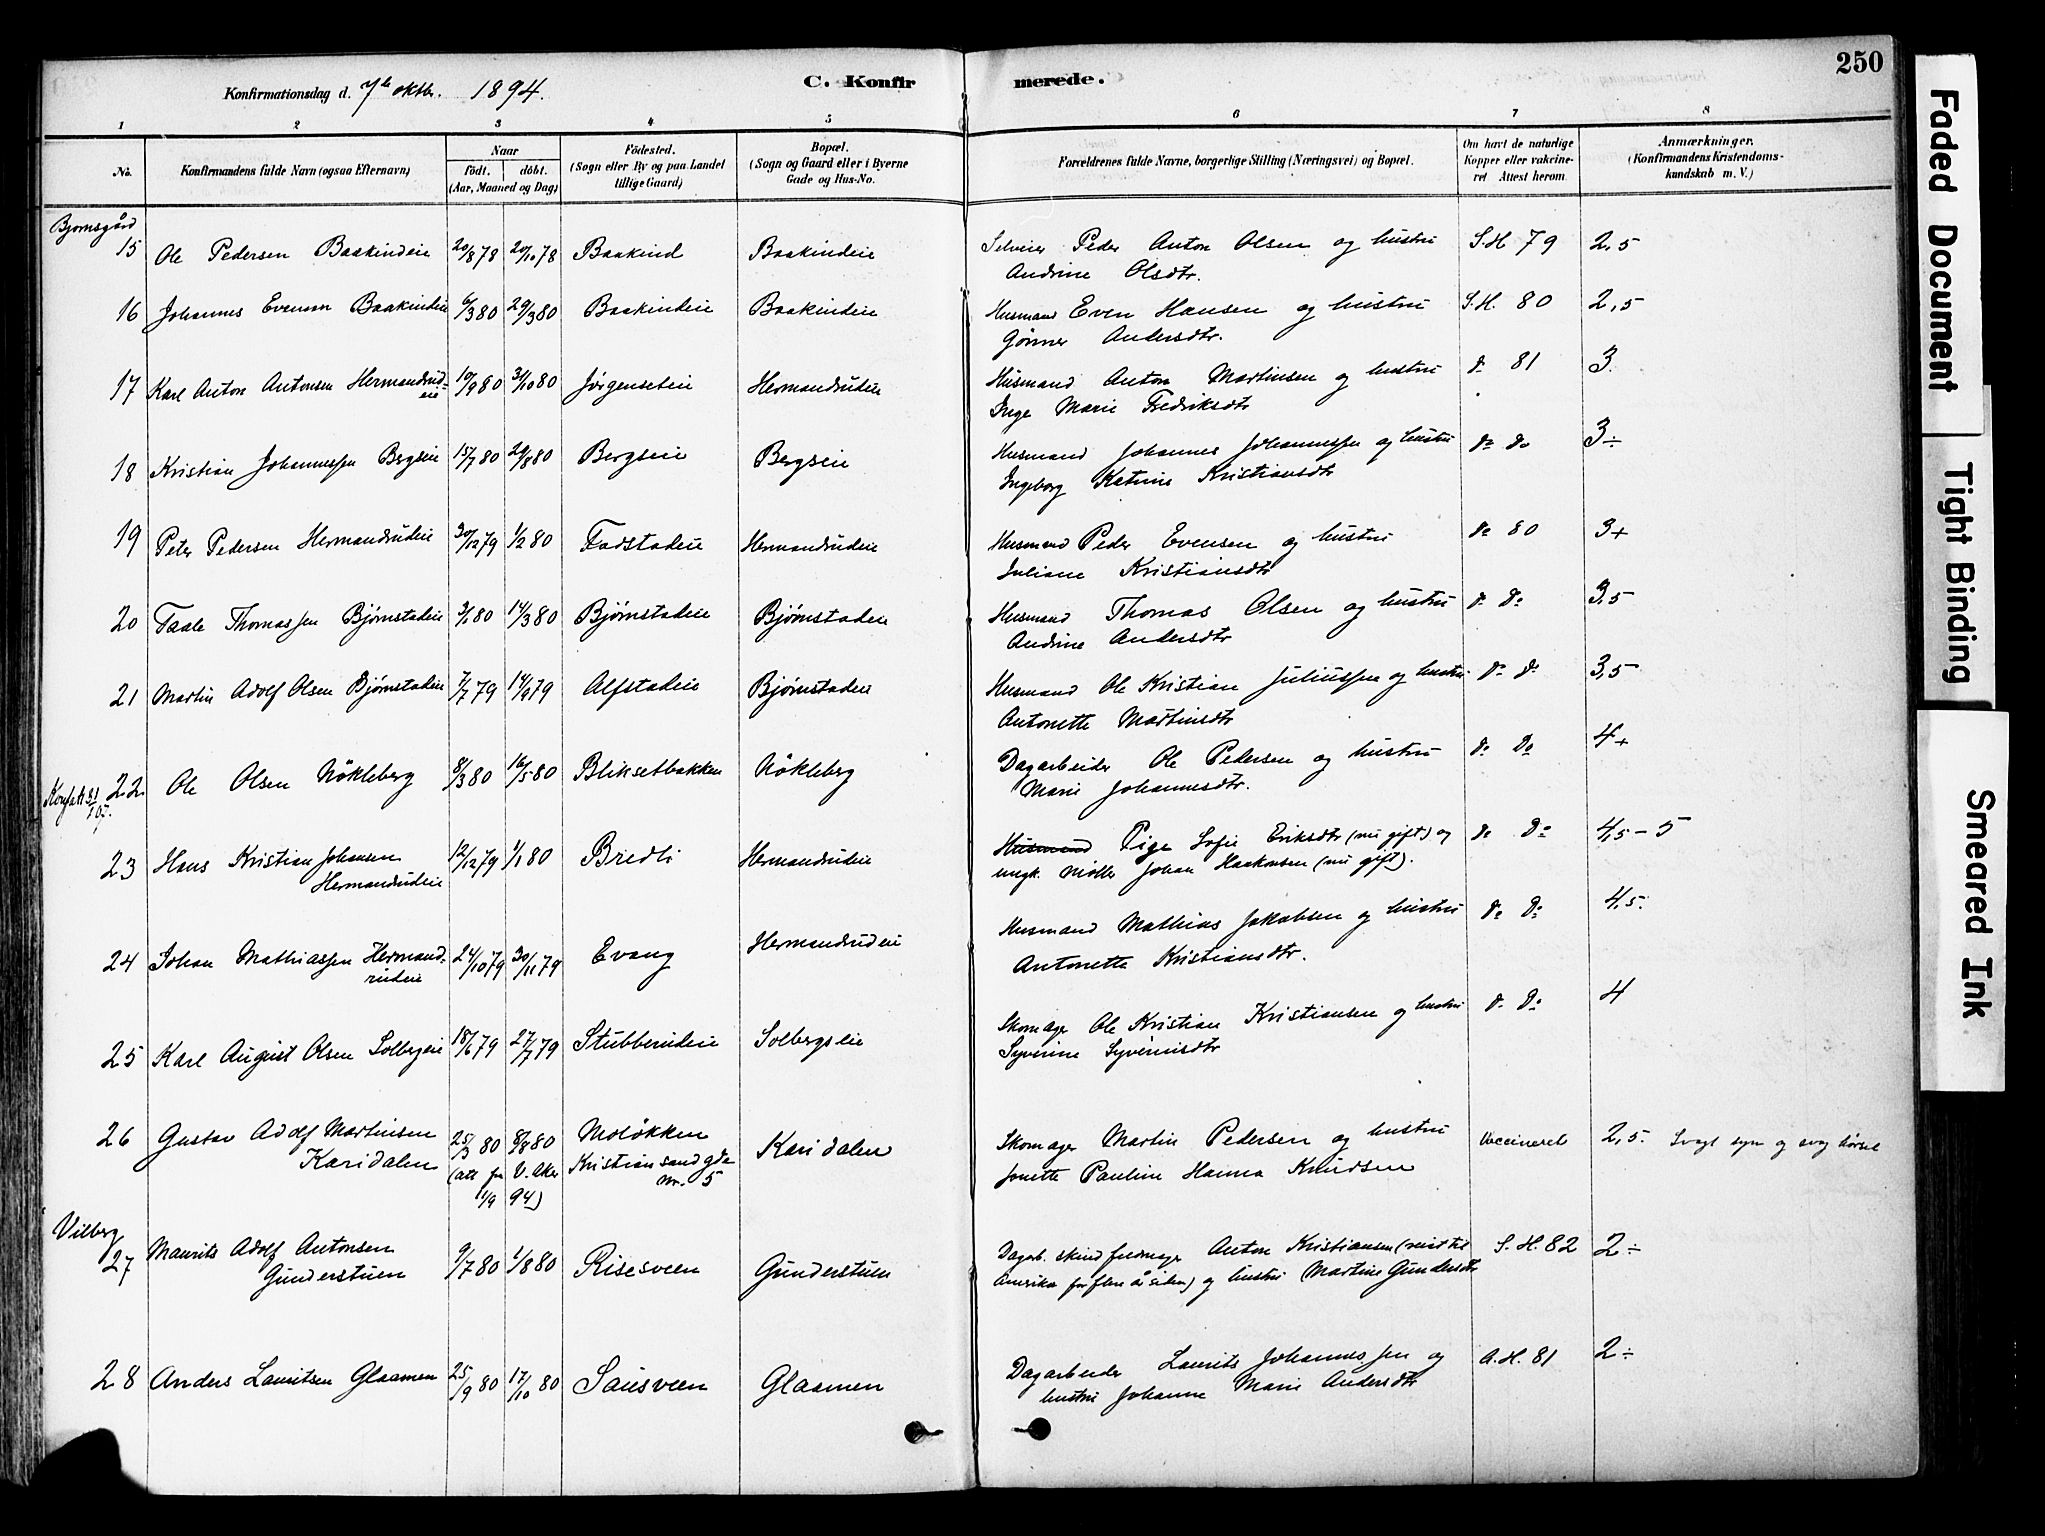 250
Konfirmationsdag d. 7de oktbr. 1894.
C. Konfirmerede.
1 2 3 4 5 6 7 8
No.
Konfirmandens fulde Navn (ogsaa Efternavn)
Naar
født. døbt.
(Aar, Maaned og Dag)
Fødested.
(Sogn eller By og paa Landet
tillige Gaard)
Bopæl.
(Sogn og Gaard eller i Byerne
Gade og Hus-No.
Forældrenes fulde Navne, borgerlige Stilling (Næringsvei) og Bopæl.
Om havt de naturlige
Kopper eller vakcine-
ret Attest herom.
Anmærkninger.
(Konfirmandens Kristendoms-
kundskab m. V.)
Bjørnsgård
15 Ole Pedersen Baakindeie 20/8 78 20/10 78 Baakind Baakindeie Selveier Peder Anton Olsen og hustru S.H 79 2,5
Andrine Olsdtr.
16 Johannes Evensen Baakindeie 6/3 80 29/3 80 Baakindeie Baakindeie Husmand Even Hansen og hustru S.H. 80 2,5
Gønner Andersdtr.
17 Karl Anton Antonsen Hermandrud- 10/9 80 31/10 80 Jørgenseteie Hermandrudeie Husmand Anton Martinsen og hustru do 81 3.
eie Inge Marie Fredriksdtr
18 Kristian Johannessen Bergseie 15/7 80 29/8 80 Bergseie Bergseie Husmand Johannes Johannessen og hustru do do 3÷
Ingeborg Katrine Kristiansdtr
19 Peter Pedersen Hermandrudeie 30/12 79 1/2 80 Fodstadeie Hermandrudeie Husmand Peder Evensen og hustru do 80 3+
Juliane Kristiansdtr
20 Taale Thomassen Bjørnstadeie 3/1 80 14/3 80 Bjørnstadeie Bjørnstadeie Husmand Thomas Olsen og hustru do do 3,5
Andrine Andersdtr
21 Martin Adolf Olsen Bjørnstadeie 7/7 79 14/9 79 Alfstadeie Bjørnstadeie Husmand Ole Kristian Juliussen og hustru do do 3,5
Antonette Martinsdtr
22. Ole Olsen Nökleberg 8/3 80 16/5 80 Bliksetbakken Nökleberg Dagarbeider Ole Pedersen og hustru do do 4+
Marie Johannesdtr.
23 Hans Kristian Johansen 12/12 79 1/1 80 Bredli Hermandrudeie Husmand Pige Sofie Eriksdtr (nu gift) og do do 4,5-5
Hermandrudeie ungk. Møller Johan Haakonsen (nu gift).
24 Johan Mathiassen Hermand- 24/10 79 30/11 79 Evang Hermandrudeie Husmand Mathias Jakobsen og hustru do do 4,5.
rudeie Antonette Kristiansdtr.
25 Karl August Olsen Solbergeie 18/6 79 27/7 79 Stubberudeie Solbergseie Skomager Ole Kristian Kristiansen og hustru do do 4
Syverine Syverinsdtr
26 Gustav Adolf Martinsen 25/3 80 8/8 80 Moløkken Karidalen Skomager Martin Pedersen og hustru Vaccineret 2,5. Svagt syn og svag hørsel
Karidalen (att fra V. Aker Kristiansand gde Jonette Pauline Hanna Knudsen
1/9 94) nr. 5
Vilberg
27 Maurits Adolf Antonsen 9/7 80 1/8 80 Risesveen Gunderstuen Dagarb. Anton Kristiansen (reist til S.H. 82 2÷
Gunderstuen Amerika for flere år siden) og hustru Martine Gundersdtr
28 Anders Lauritsen Glaamen 25/9 80 17/10 80 Sausveen Glaamen Dagarbeider Laurits Johannessen og A.H. 81 2÷
hustru Johanne Marie Andersdtr
Faded Document
Tight Binding
Smeared Ink